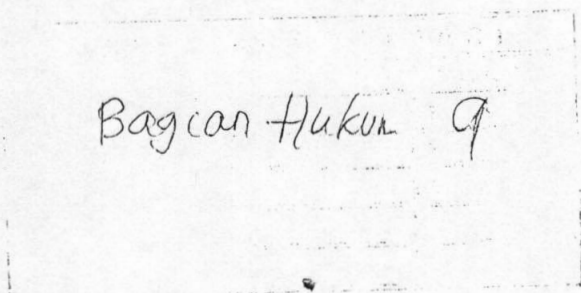 Bagian Hukum 9